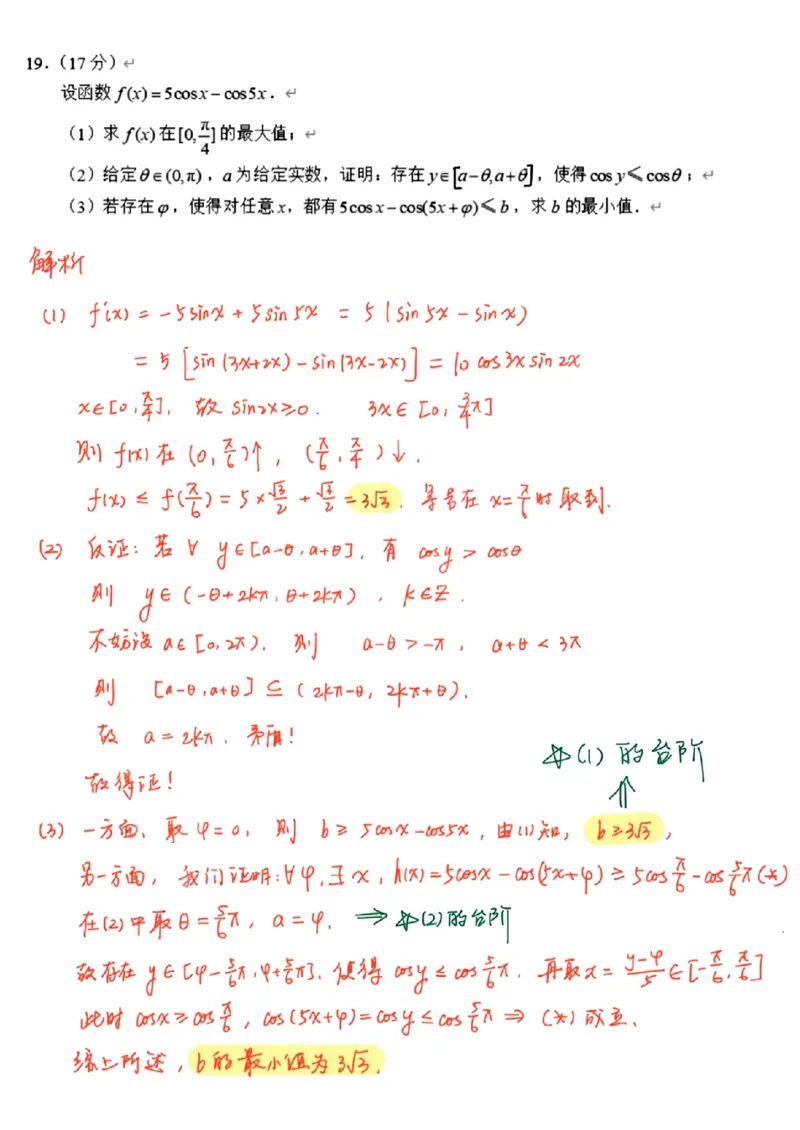 19.（17 分）↵
设函数 f(x)=5cosx−cos5x．↵
（1）求 f(x) 在[0,π/4]的最大值；↵
（2）给定θ∈(0,π)，a 为给定实数，证明：存在 y∈[a−θ,a+θ]，使得 cos y⩽cosθ；↵
（3）若存在φ，使得对任意 x，都有5cosx−cos(5x+φ)⩽b，求 b 的最小值．↵
解析
(1) f'(x) = −5sinx + 5sin5x = 5(sin5x − sinx)
= 5[sin(3x+2x) − sin(3x−2x)] = 10 cos3x sin2x
x∈[0,π/4]，故 sin2x≥0． 3x∈[0,3/4π]
则 f(x) 在 (0,π/6)↑，(π/6,π/4)↓．
f(x) ≤ f(π/6) = 5×√3/2 + √3/2 = 3√3．等号在 x=π/6时取到．
(2) 反证：若 ∀ y∈[a−θ,a+θ]，有 cosy > cosθ
则 y∈(−θ+2kπ, θ+2kπ)，k∈Z．
不妨设 a∈[0,2π)，则 a−θ>−π，a+θ<3π
则 [a−θ,a+θ] ⊆ (2kπ−θ, 2kπ+θ)．
故 a=2kπ．矛盾！
故得证！
(1)的台阶
⇑
(3) 一方面，取 φ=0，则 b≥5cosx−cos5x，由(1)知，b≥3√3，
另一方面，我们证明：∀φ,∃x，h(x)=5cosx−cos(5x+φ)≥5cosπ/6−cos5/6π(*)
在(2)中取θ=5/6π，a=φ． ⇒ (2)的台阶
故存在 y∈[φ−5/6π,φ+5/6π]，使得 cosy≤cos5/6π．再取x=(y−φ)/5∈[−π/6,π/6]
此时 cosx≥cosπ/6，cos(5x+φ)=cosy≤cos5/6π⇒(*)成立．
综上所述，b的最小值为3√3．